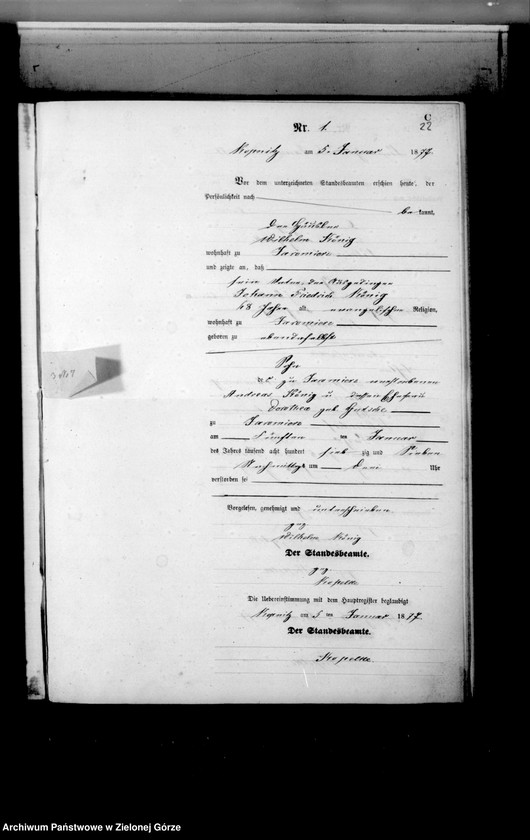 C
22
Nr. 1.
Kopnitz am 5. Januar 1877
Vor dem unterzeichneten Standesbeamten erschien heute, der
Persönlichkeit nach
be kannt,
Der Häusler
Wilhelm König
wohnhaft zu Jaromierz
und zeigte an, daß
sein Vater, der Altsitzer
Johann Friedrich König
68 Jahre alt, evangelischer Religion,
wohnhaft zu Jaromierz
geboren zu ebendaselbst
Sohn
des zu Jaromierz verstorbenen
Andreas König u. dessen Ehefrau
Dorothea geb
zu Jaromierz
am Fünften ten Januar
des Jahres tausend acht hundert sieb zig und Sieben
Nachmittags um Drei Uhr
verstorben sei
Vorgelesen, genehmigt und unterschrieben
gez
Wilhelm König
Der Standesbeamte.
gez
Die Uebereinstimmung mit dem Hauptregister beglaubigt
Kopnitz am 5 ten Januar 1877.
Der Standesbeamte.
Archiwum Państwowe w Zielonej Górze